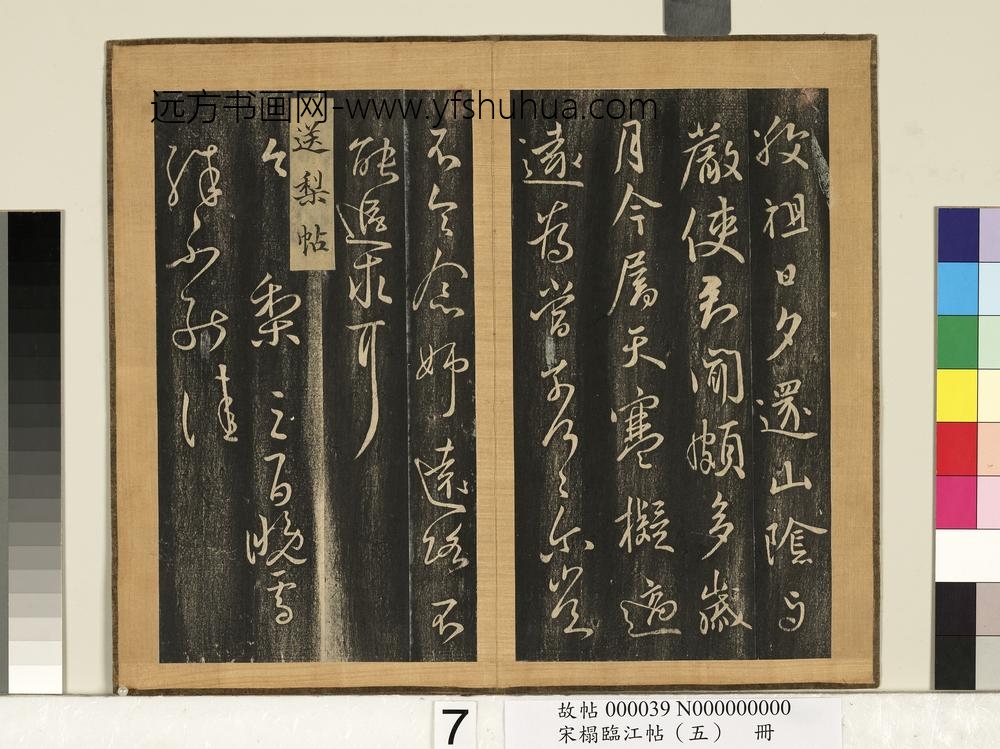 远方书画网-www.yfshuhua.com
敬祖日夕還山陰与
嚴使君聞頗多歲
月今屬天寒擬適
遠為當奈何々尔豈
不令念姉遠路不
能追求耳
送梨帖
今 梨三百晚雪
殊不能佳
7
故帖 000039 N000000000
宋榻臨江帖（五） 冊